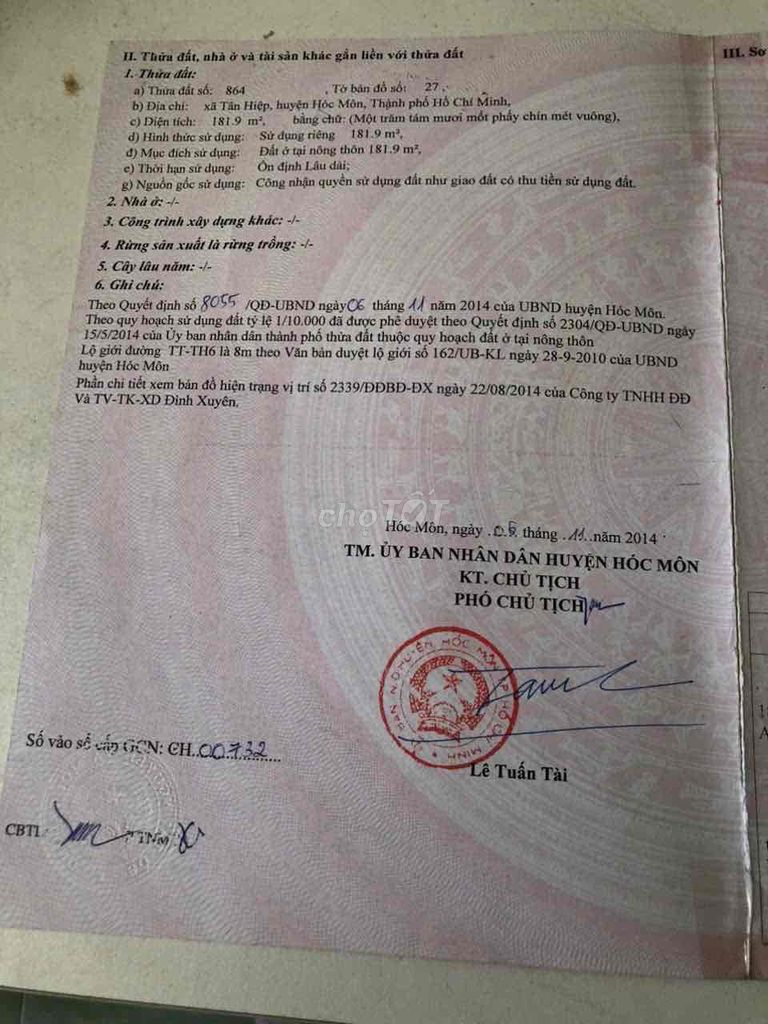 II. Thửa đất, nhà ở và tài sản khác gắn liền với thửa đất
1. Thửa đất:
a) Thửa đất số: 864 , Tờ bản đồ số: 27 ,
b) Địa chỉ: xã Tân Hiệp, huyện Hóc Môn, Thành phố Hồ Chí Minh,
c) Diện tích: 181.9 m², bằng chữ: (Một trăm tám mươi mốt phẩy chín mét vuông),
d) Hình thức sử dụng: Sử dụng riêng 181.9 m²,
đ) Mục đích sử dụng: Đất ở tại nông thôn 181.9 m²,
e) Thời hạn sử dụng: Ổn định Lâu dài;
g) Nguồn gốc sử dụng: Công nhận quyền sử dụng đất như giao đất có thu tiền sử dụng đất.
2. Nhà ở: -/-
3. Công trình xây dựng khác: -/-
4. Rừng sản xuất là rừng trồng: -/-
5. Cây lâu năm: -/-
6. Ghi chú:
Theo Quyết định số 8055 /QĐ-UBND ngày 06 tháng 11 năm 2014 của UBND huyện Hóc Môn.
Theo quy hoạch sử dụng đất tỷ lệ 1/10.000 đã được phê duyệt theo Quyết định số 2304/QĐ-UBND ngày
15/5/2014 của Ủy ban nhân dân thành phố thửa đất thuộc quy hoạch đất ở tại nông thôn
Lộ giới đường TT-TH6 là 8m theo Văn bản duyệt lộ giới số 162/UB-KL ngày 28-9-2010 của UBND
huyện Hóc Môn
Phần chi tiết xem bản đồ hiện trạng vị trí số 2339/ĐĐBĐ-ĐX ngày 22/08/2014 của Công ty TNHH ĐĐ
Và TV-TK-XD Đinh Xuyên.
III. Sơ
choTỐT
Hóc Môn, ngày tháng .11..năm 2014
TM. ỦY BAN NHÂN DÂN HUYỆN HÓC MÔN
KT. CHỦ TỊCH
PHÓ CHỦ TỊCH
BAN N.D HUYỆN HÓC MÔN MINH
Lê Tuấn Tài
Số vào sổ cấp GCN: CH..00732
CBTL TTNM